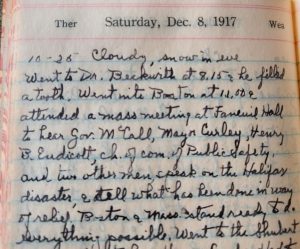 Ther Saturday, Dec. 8, 1917 Wea
10-25 Cloudy, snow in eve
Went to Dr. Beckwith at 8.15 & he filled
a tooth. Went into Boston at 11.00 &
attended a mass meeting at Faneuil Hall
to hear Gov. McCall, Mayor Curley, Henry
B. Endicott, ch. of com. of Public Safety,
and two other men, speak on the Halifax
disaster & tell what has been done in way
of relief. Boston & Mass. stand ready to do
everything possible. Went to the Shubert